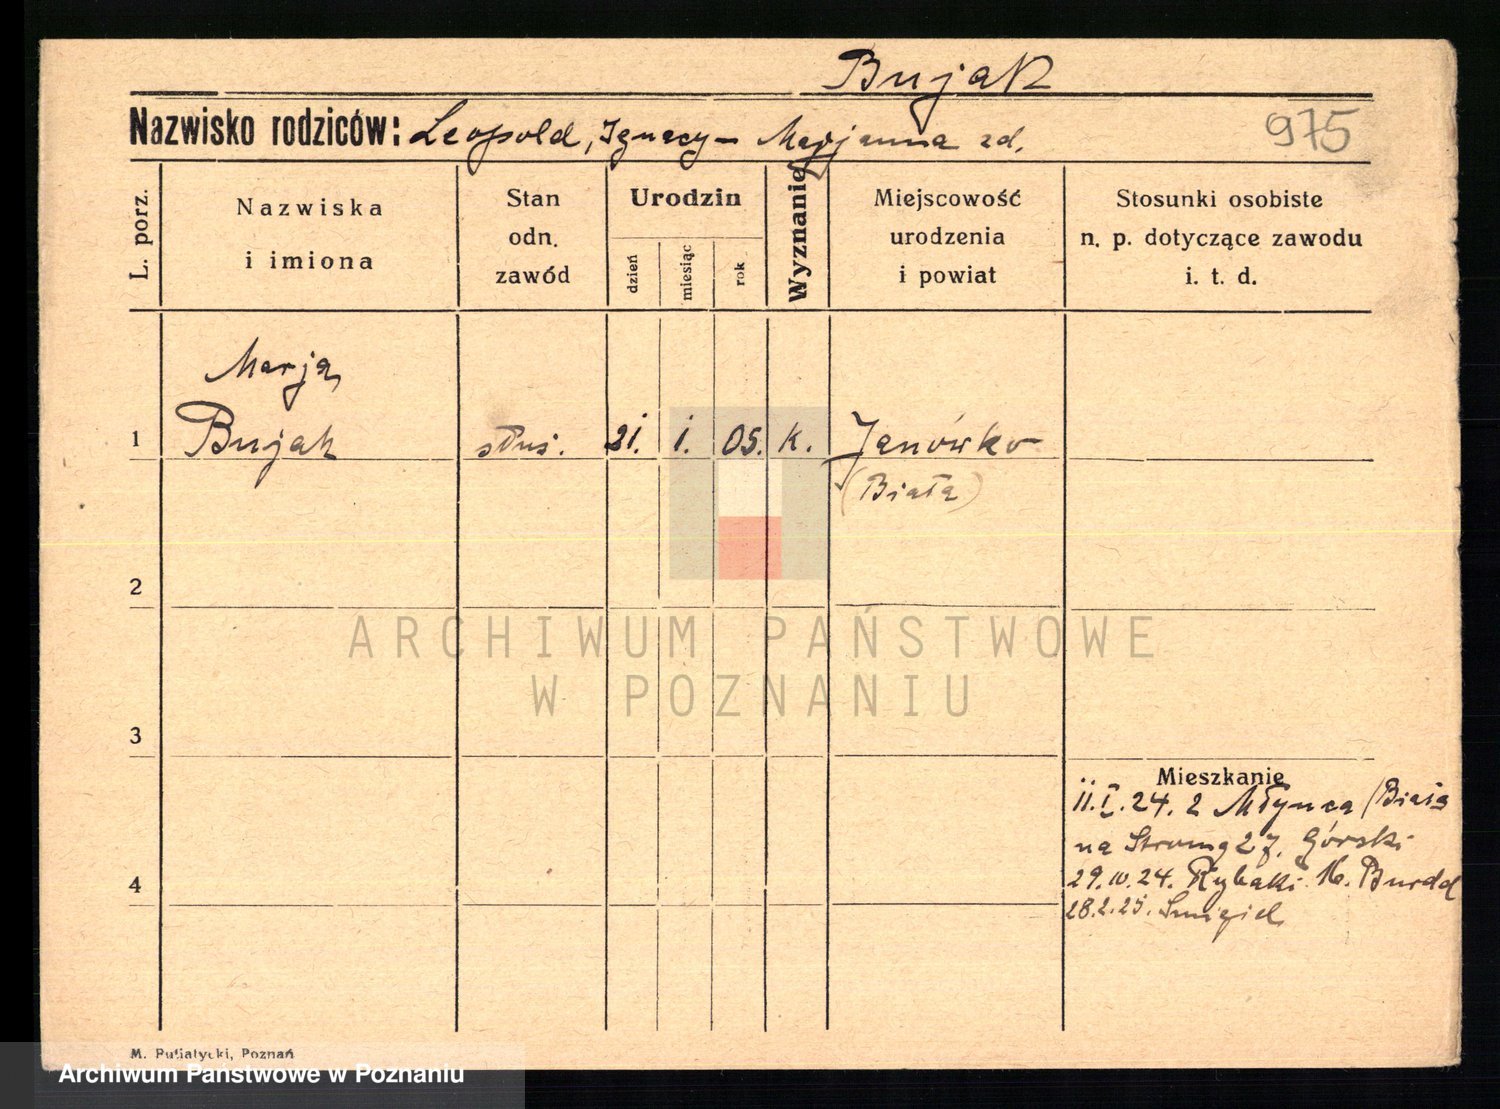 Bujak
Nazwisko rodziców: Leopold, Ignacy - Marjanna zd.
975
L. porz.
Nazwiska
i imiona
Stan
odn.
zawód
Urodzin
dzień
miesiąc
rok
Wyznanie
Miejscowość
urodzenia
i powiat
Stosunki osobiste
n. p. dotyczące zawodu
i. t. d.
Marja
1 Bujak służ. 21. 1. 05. k. Janówko
(Biała)
2
ARCHIWUM PAŃSTWOWE
W POZNANIU
3
Mieszkanie
11. I. 24. z Młynca (Biała
na Stromą 27. Górski
4
29. IV. 24. Rybaki 16.
28. 2. 25. Śmigiel
M. Putiatycki, Poznań
Archiwum Państwowe w Poznaniu